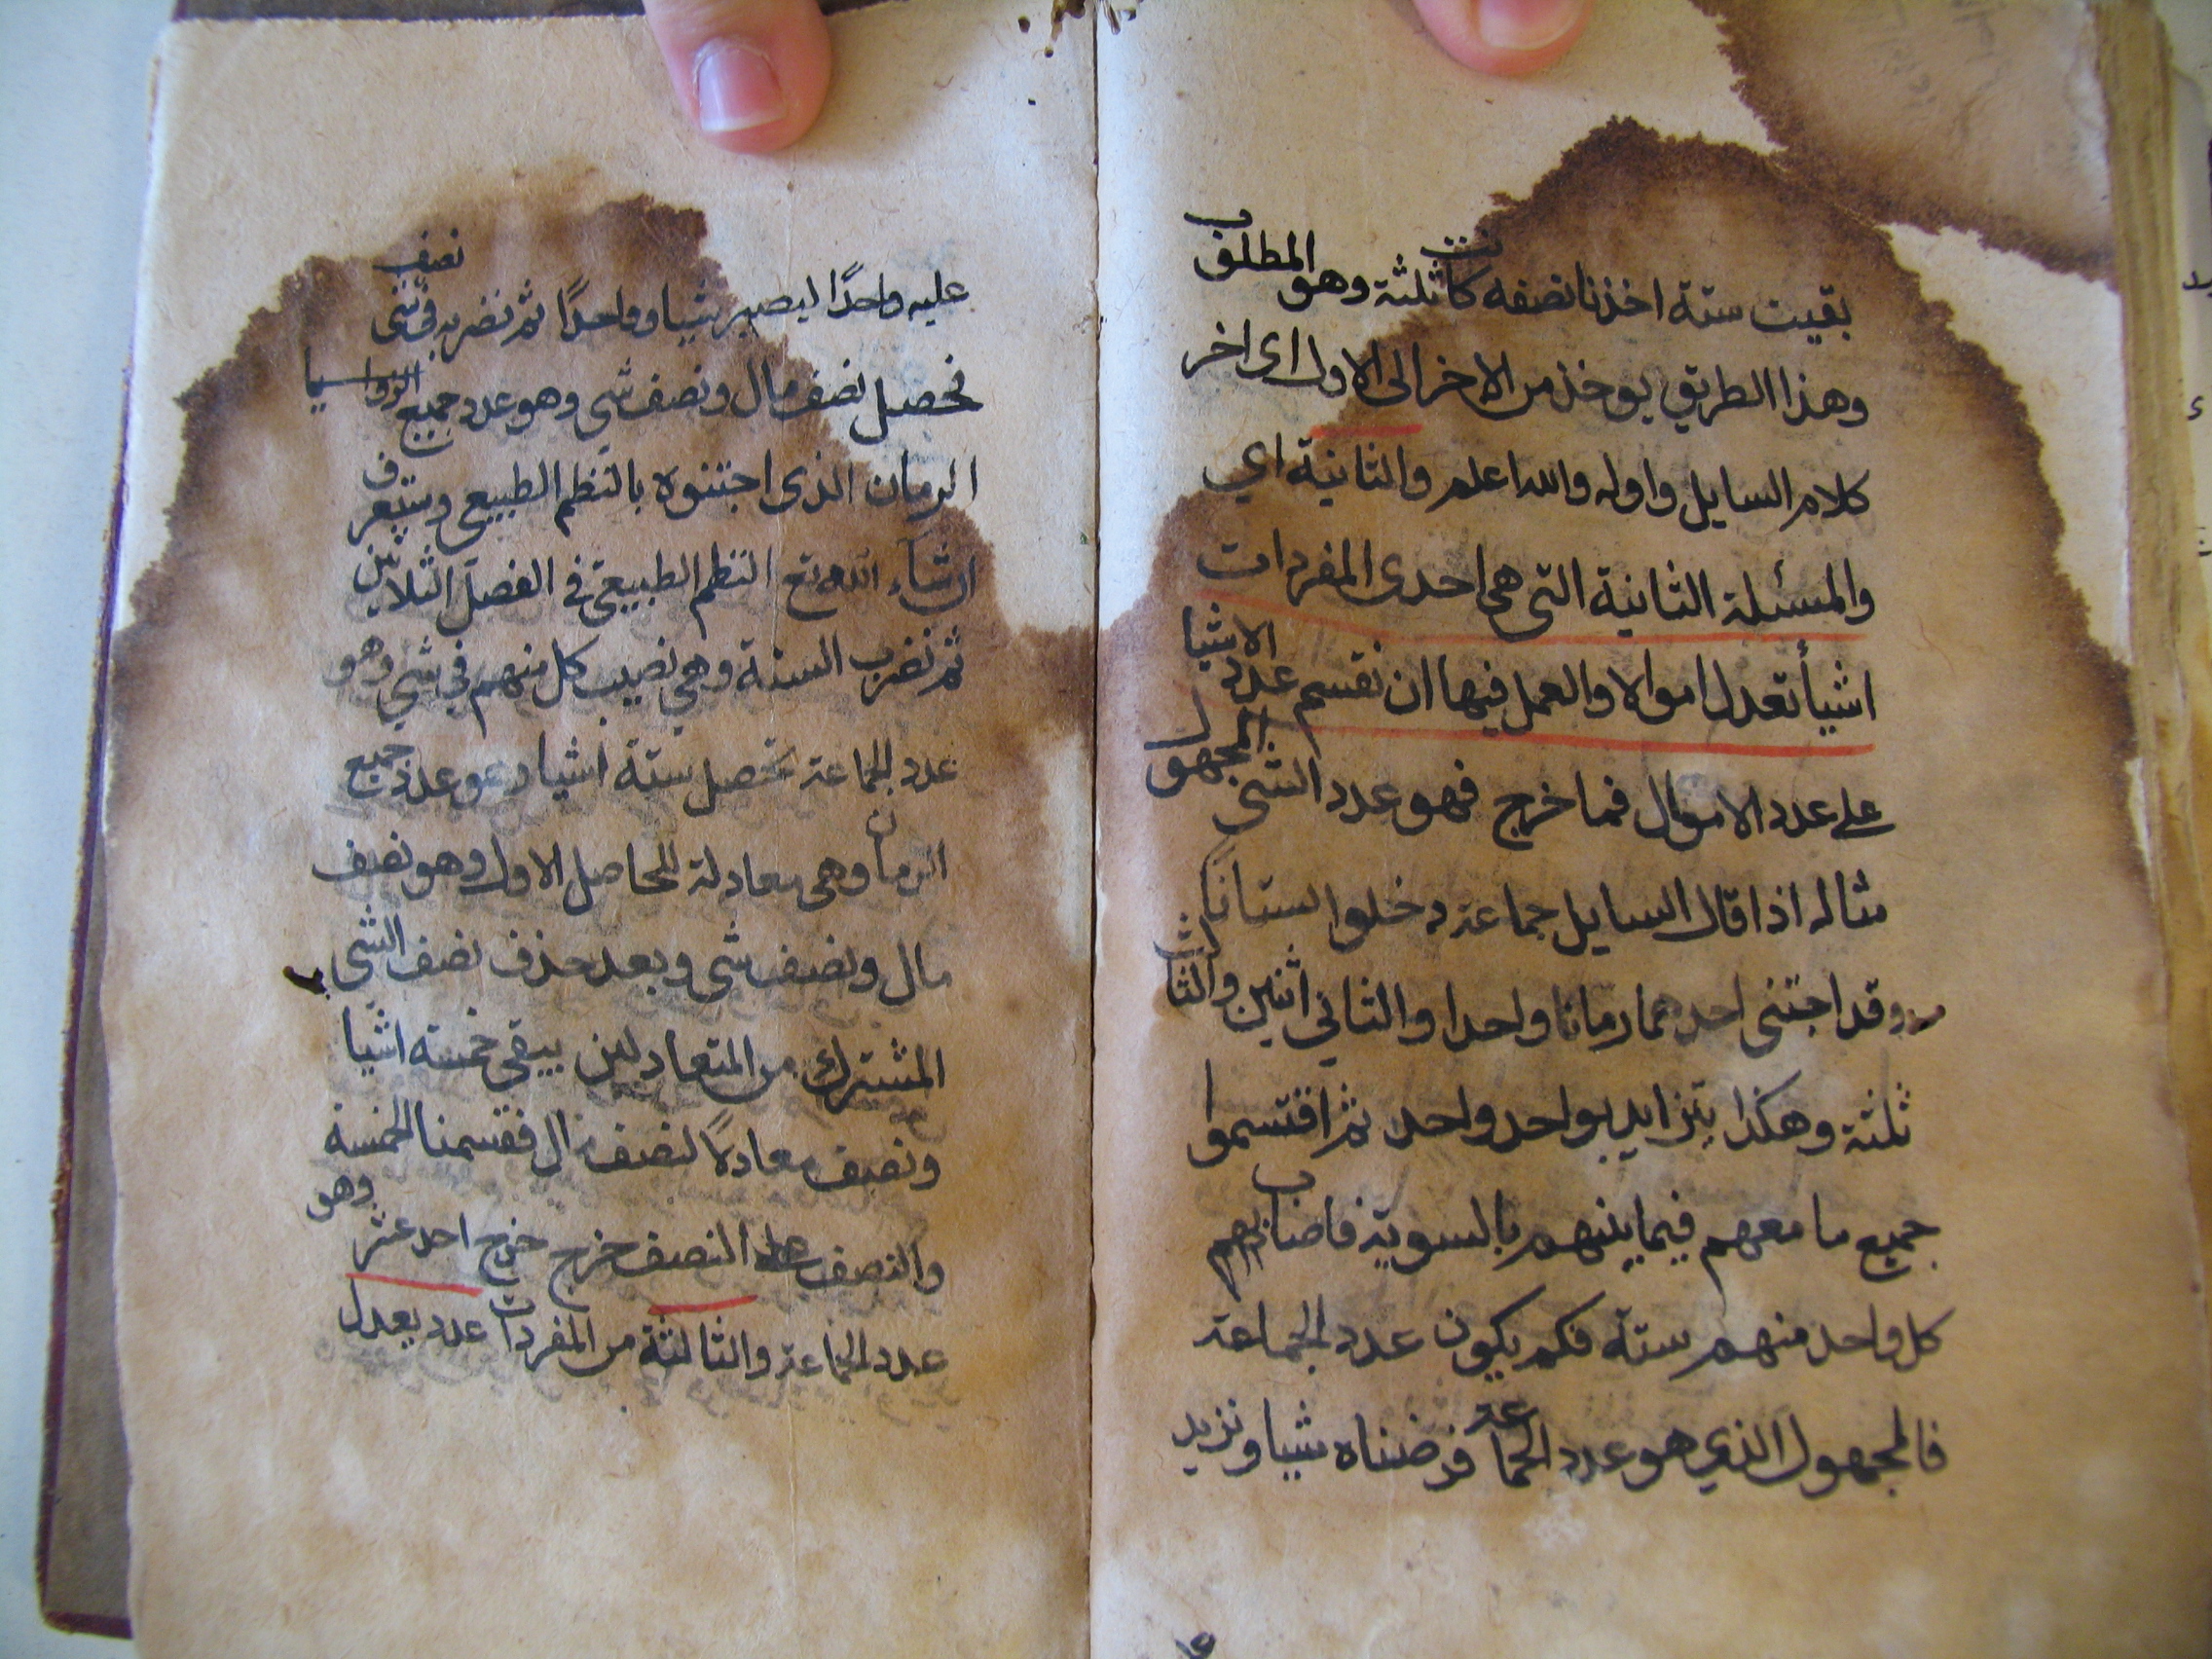 بقيت ستة اخذنا نصفه كانت ثلثة وهو المطلوب
وهذا الطريق يوخذ من الاخر الى الاول اى اخر
كلام السايل واوله والله اعلم والثانية اي
والمسئلة الثانية التى هى احدى المفردات
اشيأ تعدل اموالا والعمل فيها ان نقسم عدد الاشيا
على عدد الاموال فما خرج فهو عدد الشى المجهول
مثاله اذا قال السايل جماعة دخلوا بستانا
وقد اجتنى احدهما رمانا واحدا والثاني اثنين والثالث
ثلثة وهكذا يتزايد بواحد واحد ثم اقتسموا
جميع ما معهم فيما بينهم بالسوية فاصاب
كل واحد منهم ستة فكم يكون عدد الجماعة
فالمجهول الذي هو عدد الجماعة فرضناه شيا ونزيد
عليه واحدًا ليصير شيا وواحدًا ثم نضربه في نصف شى
تحصل نصف مال ونصف شى وهو عدد جميع
الرمان الذى اجتنوه بالنظم الطبيعى وستعرف
ان شاء الله تع النظم الطبيعى في الفصل الثلاثين
ثم نضرب الستة وهي نصيب كل منهم في شي وهو
عدد الجماعة تحصل ستة اشيا وهو عدد جميع
الرمان وهى معادلة للحاصل الاول وهو نصف
مال ونصف شى وبعد حذف نصف الشى
المشترك من المتعادلين يبقى خمسة اشيا
ونصف معادلًا لنصف مال فقسمنا الخمسة
والنصف على النصف خرج خرج احد عشر وهو
عدد الجماعة والثالثة من المفردات عدد يعدل